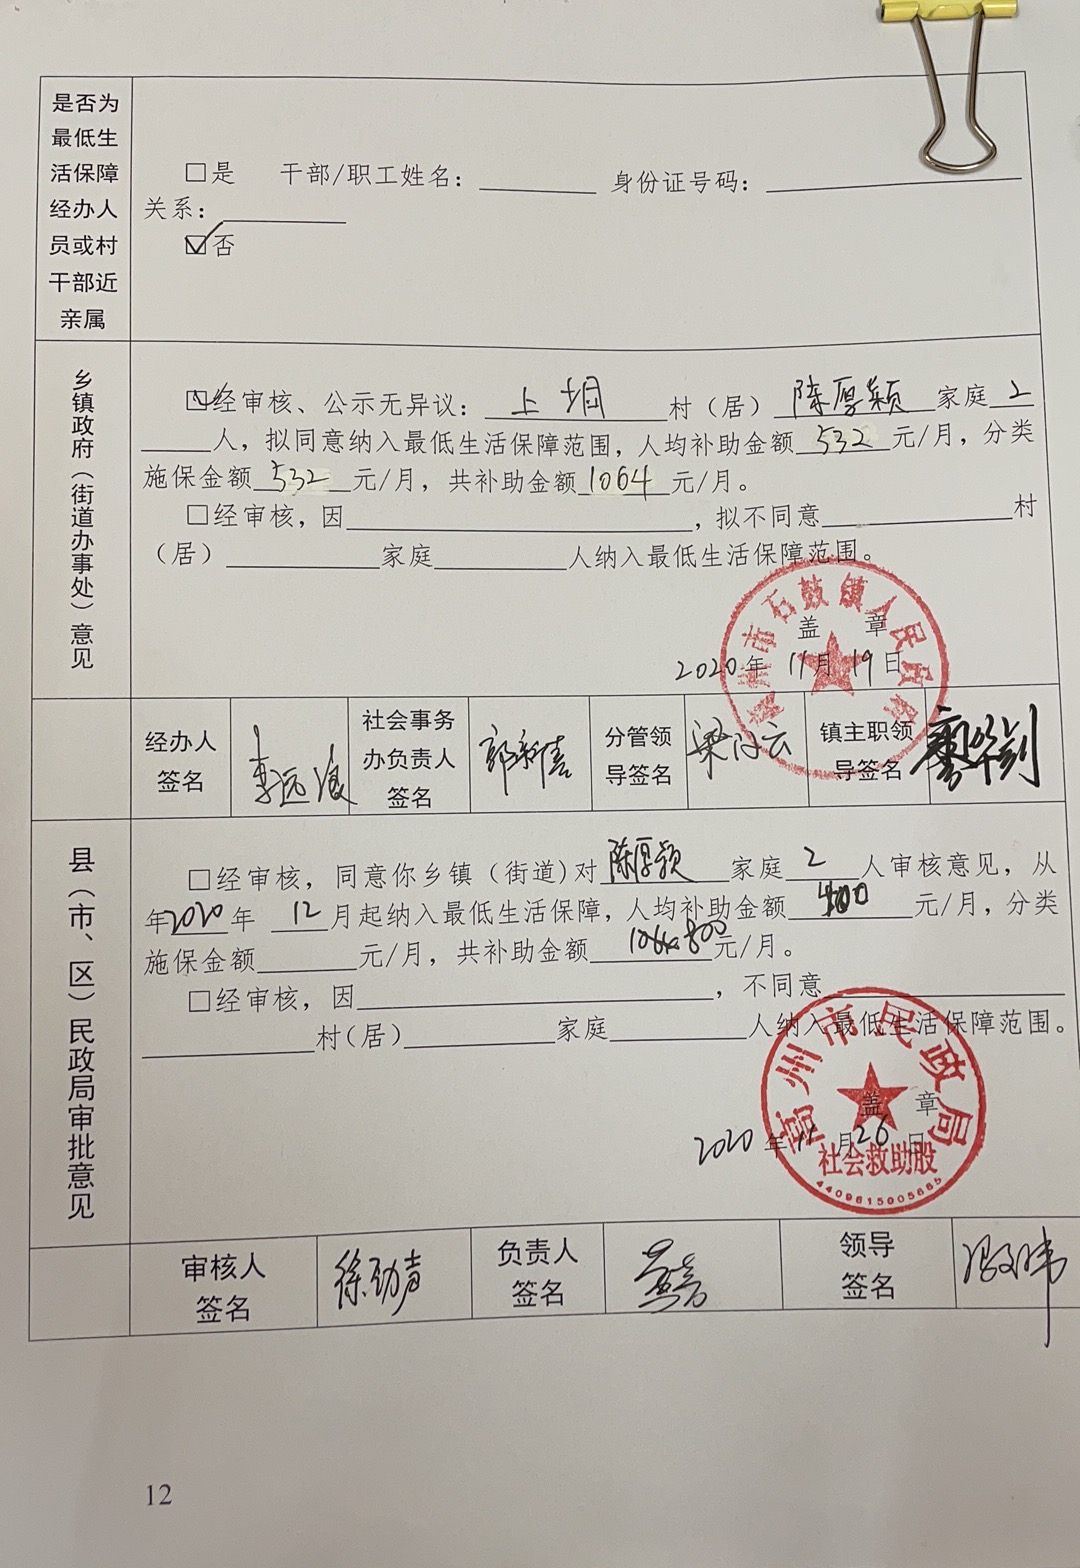 是否为
最低生
活保障
经办人
员或村
干部近
亲属
□是 干部/职工姓名：________ 身份证号码：________
关系：________
☑否
乡镇政府（街道办事处）意见
☑经审核、公示无异议：上垌村（居）陈厚颖家庭2
____人，拟同意纳入最低生活保障范围，人均补助金额532元/月，分类
施保金额532元/月，共补助金额1064元/月。
□经审核，因________，拟不同意________村
（居）________家庭________人纳入最低生活保障范围。
盖 章
2020年11月19日
州市石鼓镇人民政府
经办人
签名
李远浪
社会事务
办负责人
签名
郭
分管领
导签名
梁 云
镇主职领
导签名
廖华剑
县（市、区）民政局审批意见
□经审核，同意你乡镇（街道）对陈厚颖家庭2人审核意见，从
年2020年 12月起纳入最低生活保障，人均补助金额400元/月，分类
施保金额____元/月，共补助金额1064 800元/月。
□经审核，因________，不同意________
________村（居）________家庭________人纳入最低生活保障范围。
盖 章
2020年 月26日
高州市民政局
社会救助股
4409615005665
审核人
签名
徐劲声
负责人
签名
领导
签名
12